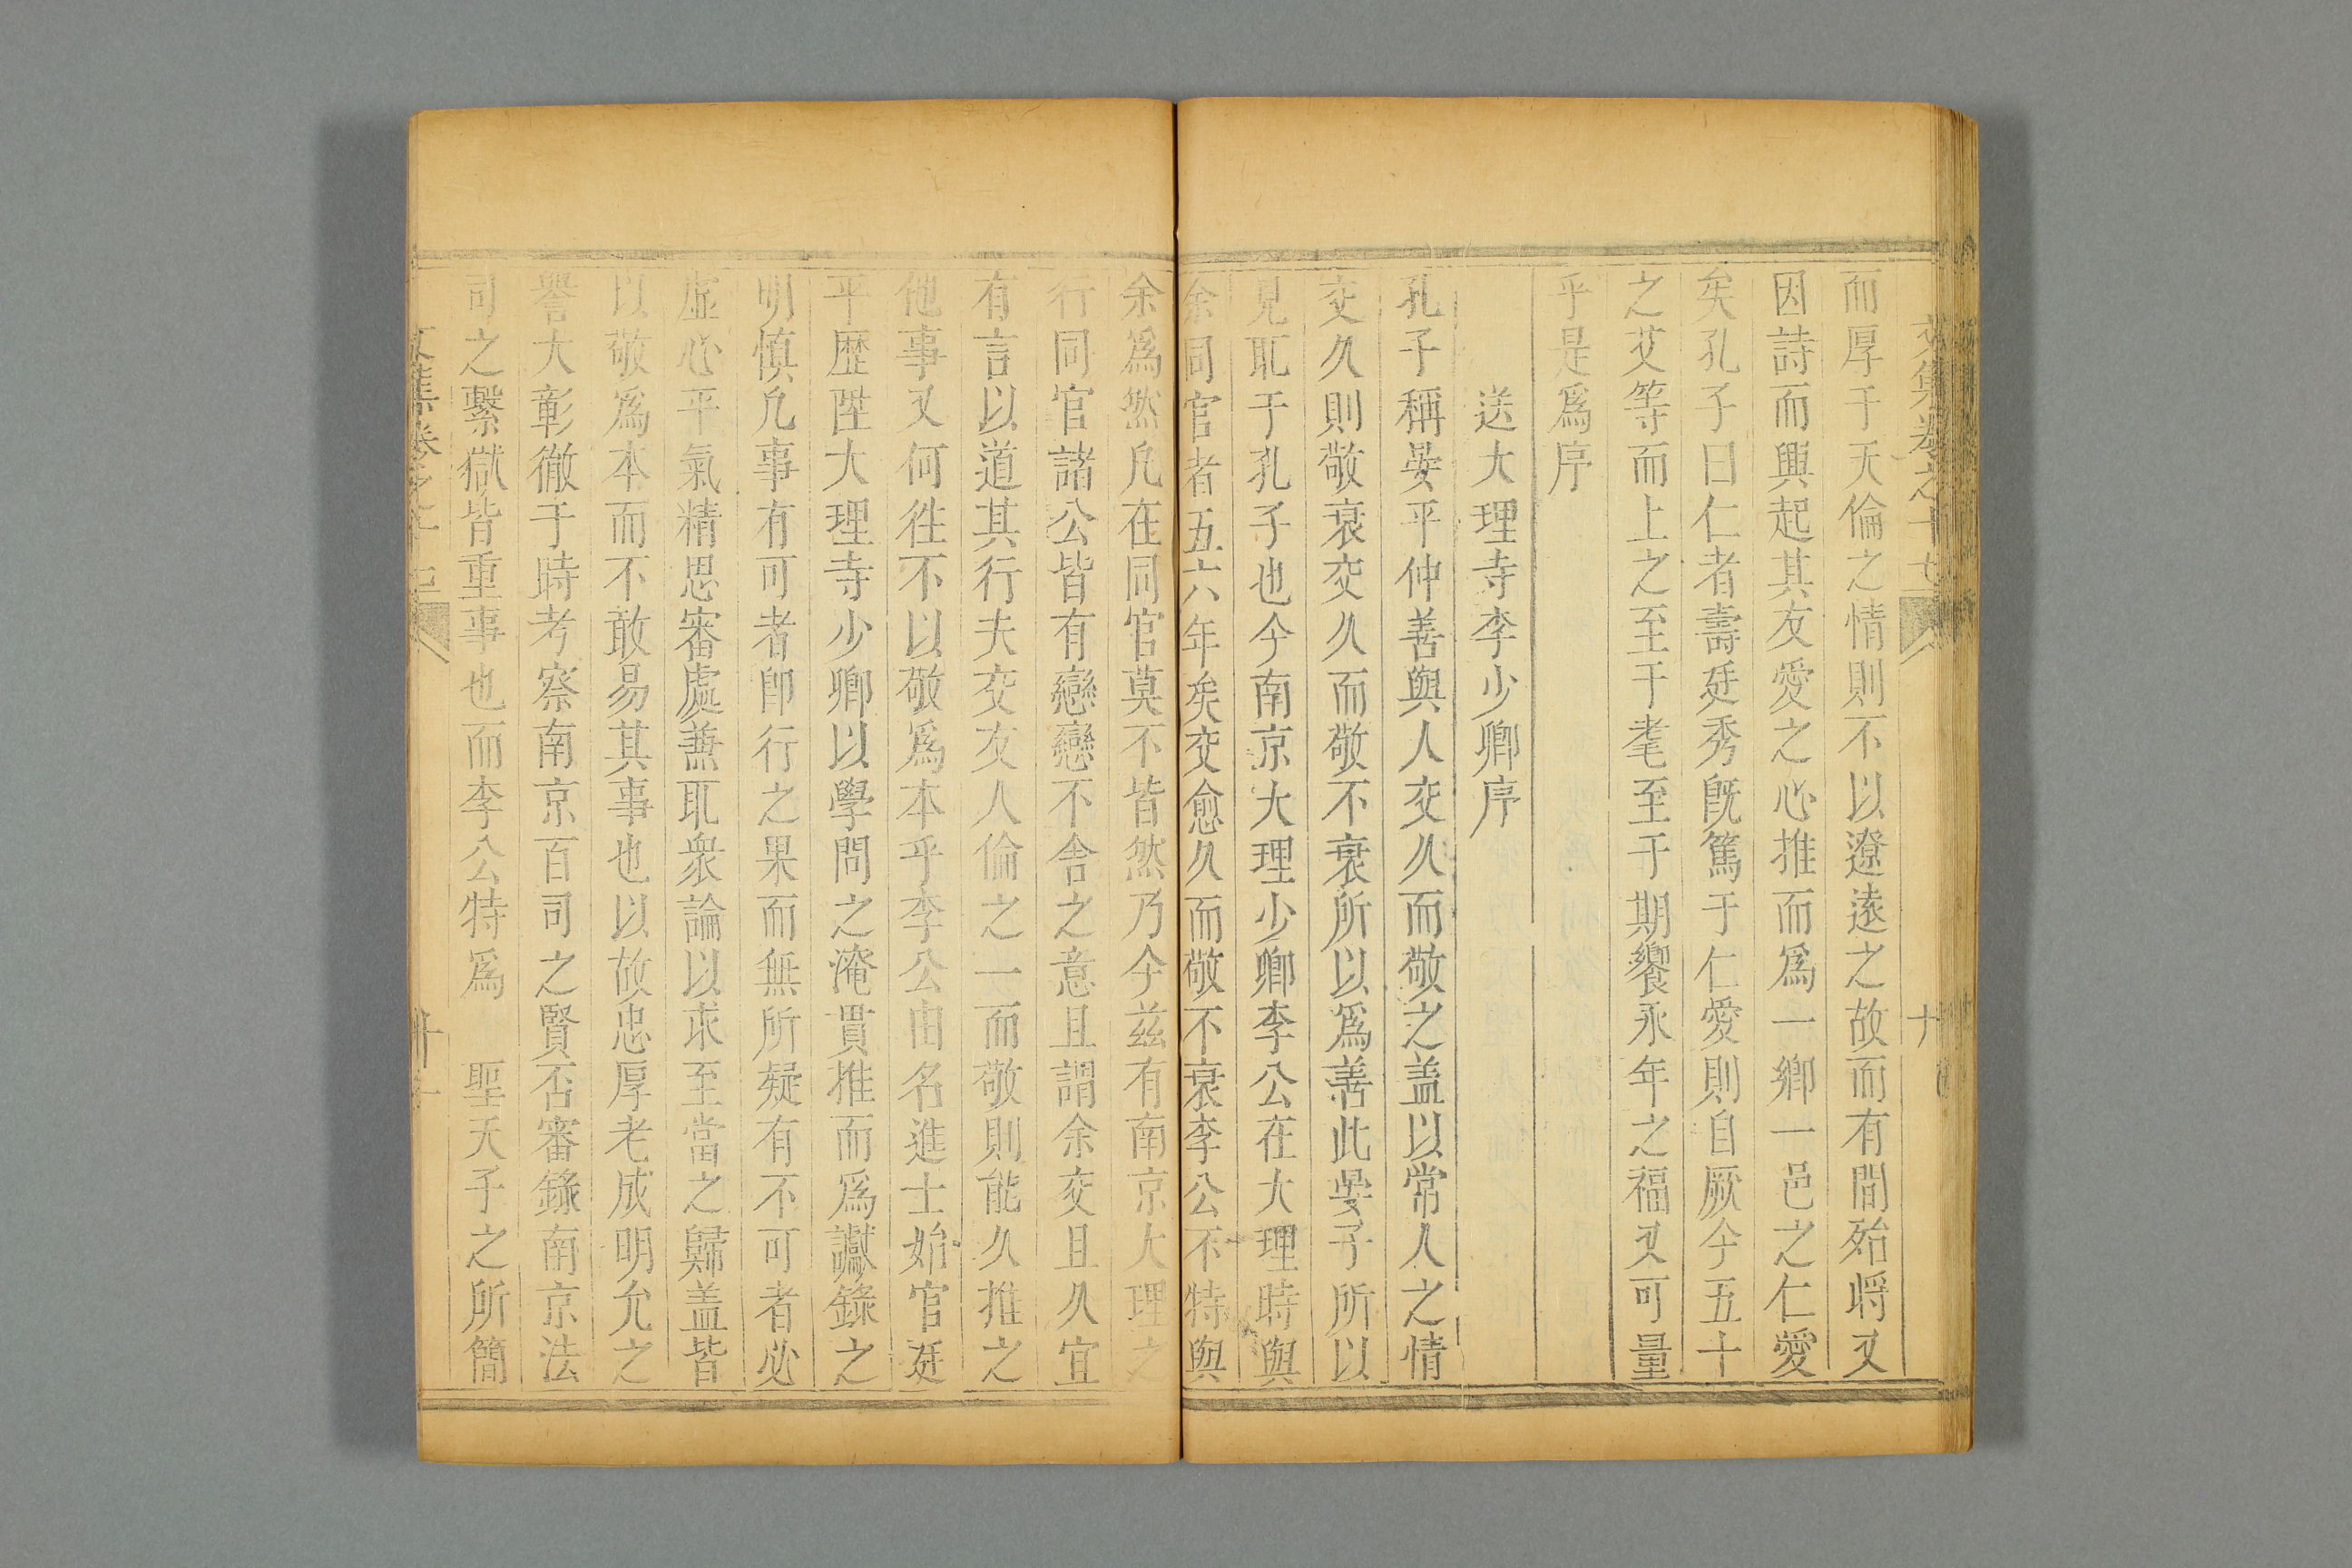 文集卷之十七
十
而厚于天倫之情則不以遼遠之故而有間殆將又
因詩而興起其友愛之心推而爲一鄉一邑之仁愛
矣孔子曰仁者壽廷秀旣篤于仁愛則自厥今五十
之艾等而上之至于耄至于期饗永年之福又可量
乎是爲序
送大理寺李少卿序
孔子稱晏平仲善與人交久而敬之盖以常人之情
交久則敬衰交久而敬不衰所以爲善此晏子所以
見取于孔子也今南京大理少卿李公在大理時與
余同官者五六年矣交愈久而敬不衰李公不特與
余爲然凡在同官莫不皆然乃今茲有南京大理之
行同官諸公皆有戀戀不舍之意且謂余交且久宜
有言以道其行夫交友人倫之一而敬則能久推之
他事又何徃不以敬爲本乎李公由名進士始官廷
平歷陞大理寺少卿以學問之淹貫推而爲讞錄之
明慎凡事有可者卽行之果而無所疑有不可者必
虛心平氣精思審處兼取衆論以求至當之歸盖皆
以敬爲本而不敢易其事也以故忠厚老成明允之
譽大彰徹于時考察南京百司之賢否審錄南京法
司之繫獄皆重事也而李公特爲　聖天子之所簡
文集卷之十
十一